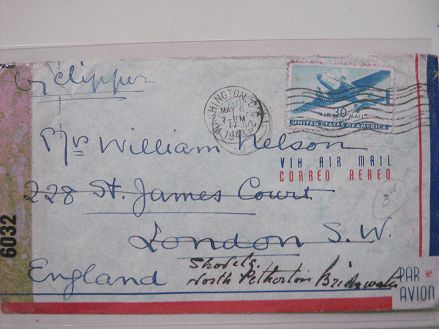 by Clipper
WASHINGTON
MAY 6
PM
1943
30
AIR MAIL
UNITED STATES OF AMERICA
Mr William Nelson
VIA AIR MAIL
CORREO AEREO
228 St. James Court
London S.W.
England
North Petherton Bridgwater
PAR
AVION
6032